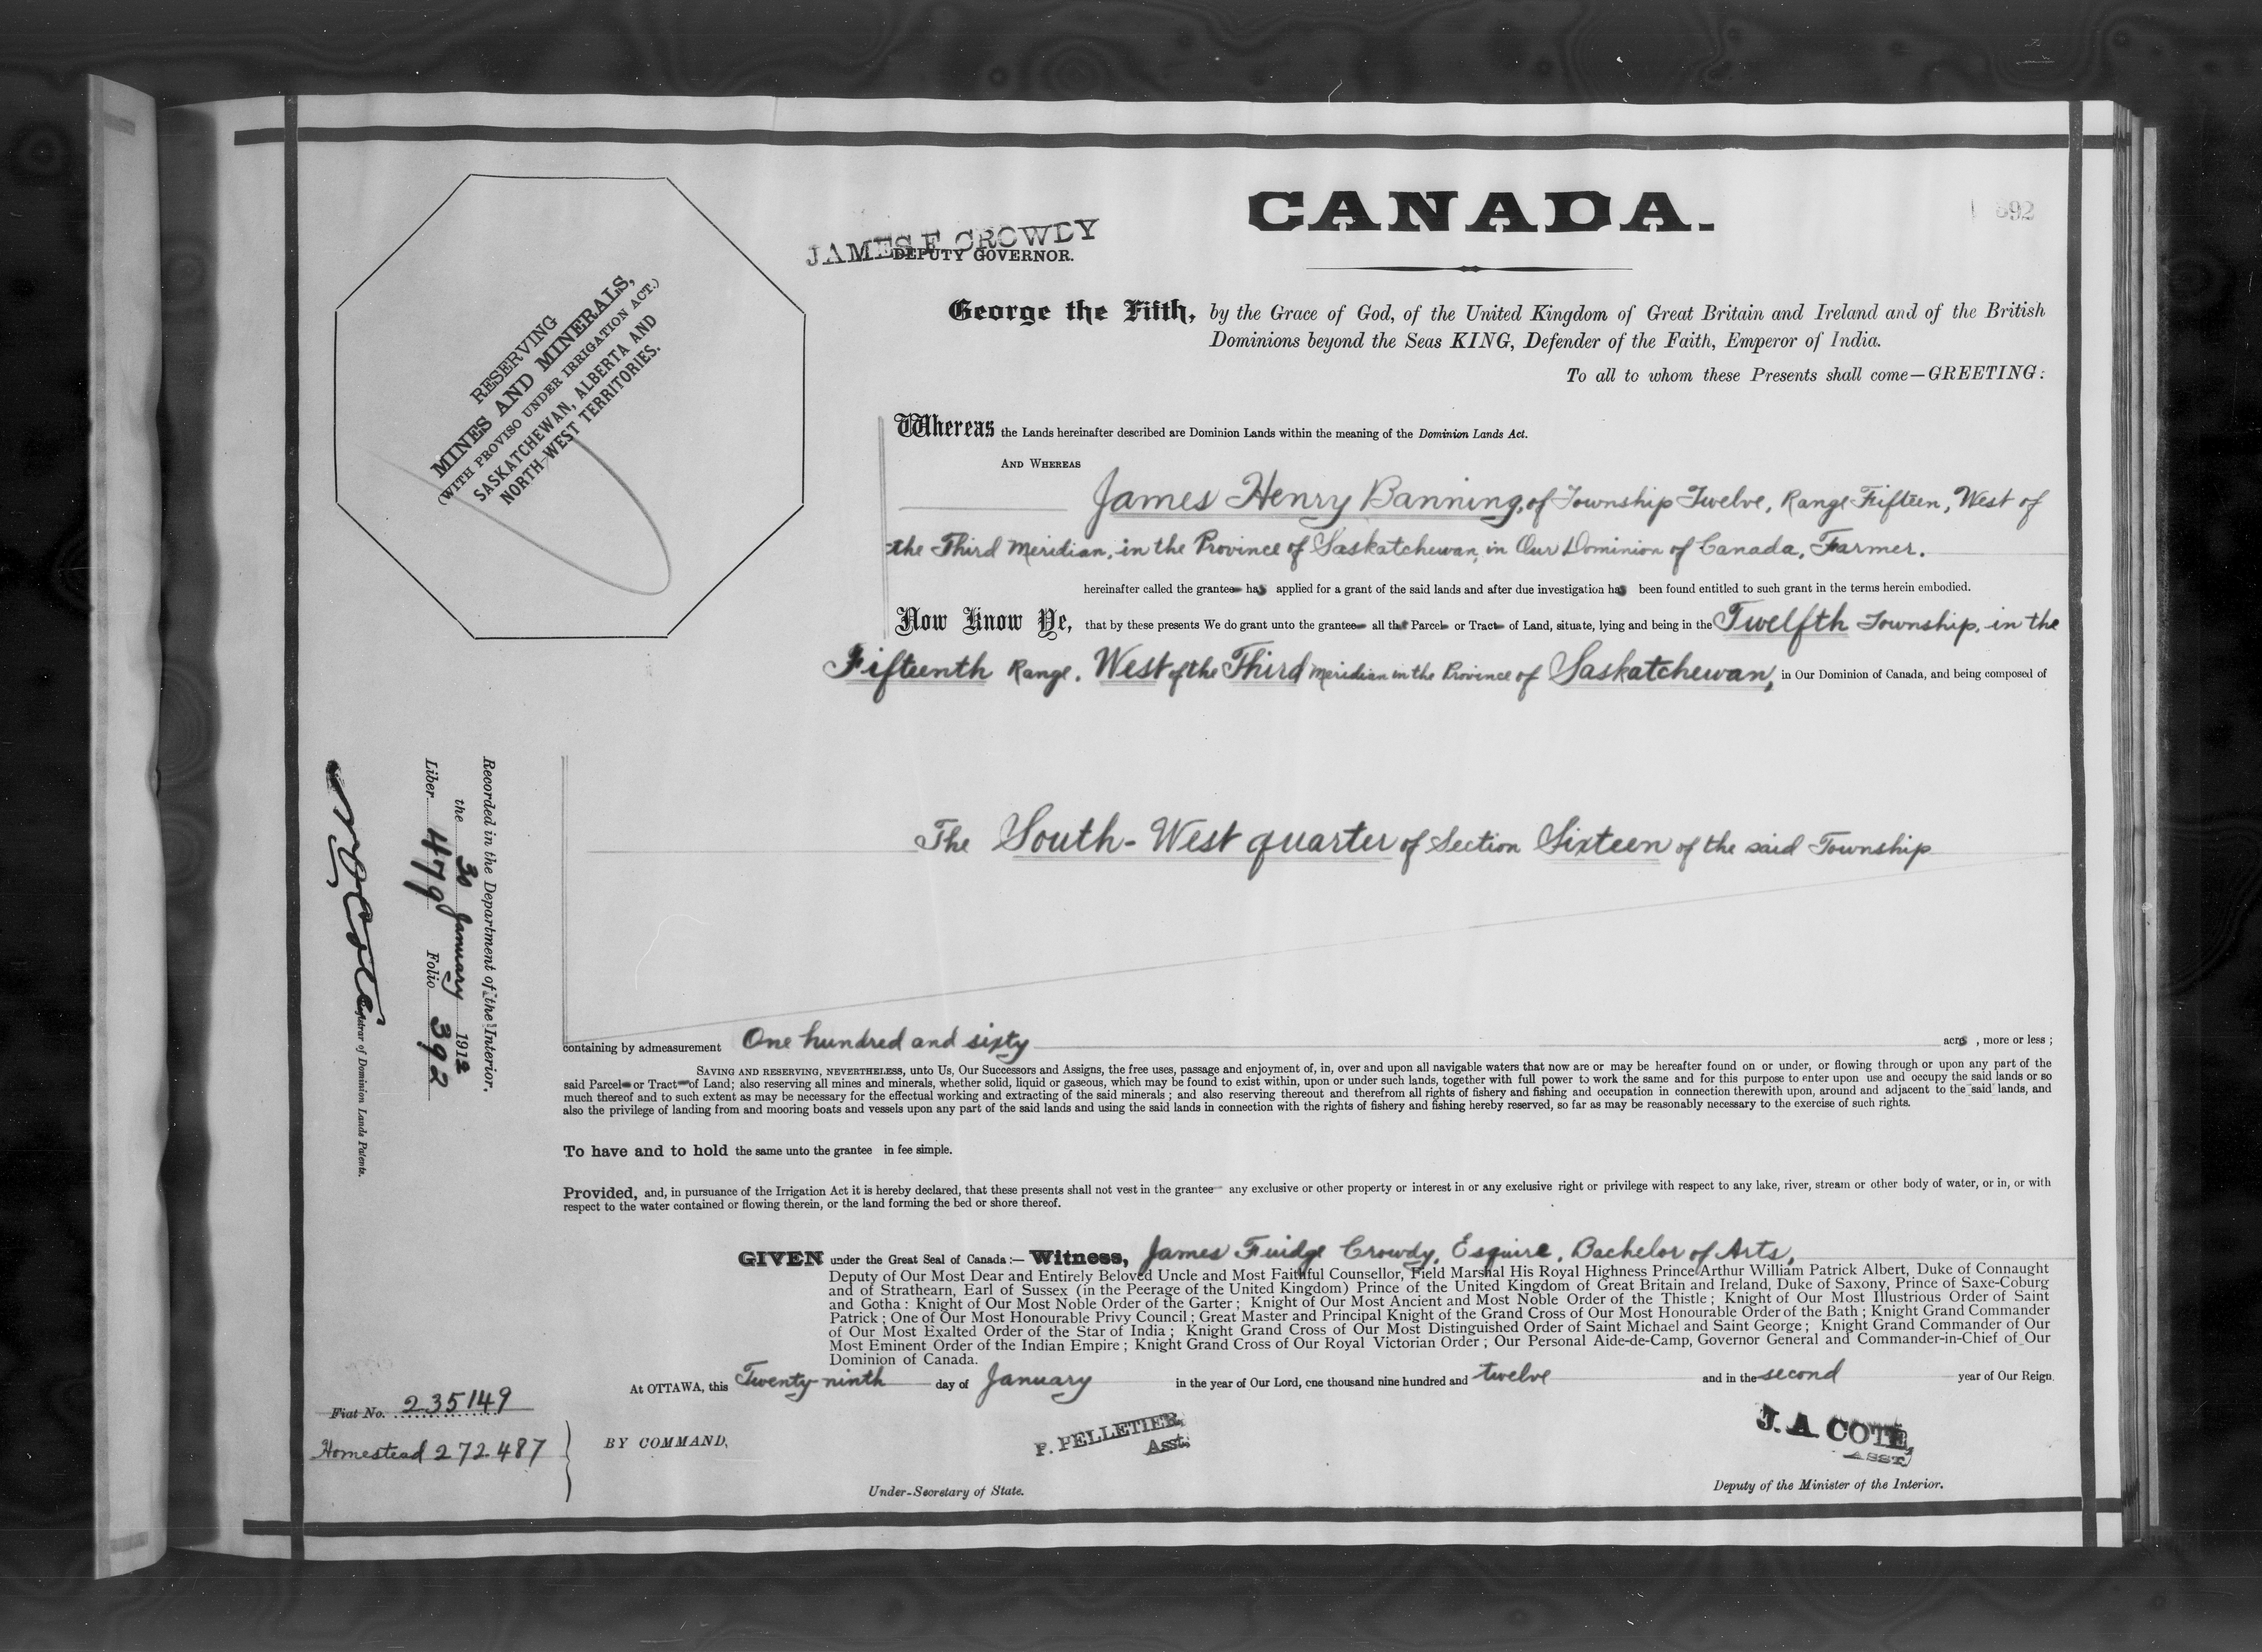 CANADA.
392
JAMES F. CROWDY
DEPUTY GOVERNOR.
RESERVING
MINES AND MINERALS,
(WITH PROVISO UNDER IRRIGATION ACT.)
SASKATCHEWAN, ALBERTA AND
NORTH-WEST TERRITORIES.
George the Fifth, by the Grace of God, of the United Kingdom of Great Britain and Ireland and of the British
Dominions beyond the Seas KING, Defender of the Faith, Emperor of India.
To all to whom these Presents shall come—GREETING:
Whereas the Lands hereinafter described are Dominion Lands within the meaning of the Dominion Lands Act.
AND WHEREAS
James Henry Banning, of Township Twelve, Range Fifteen, West of
the Third Meridian, in the Province of Saskatchewan, in Our Dominion of Canada, Farmer.
hereinafter called the grantee has applied for a grant of the said lands and after due investigation has been found entitled to such grant in the terms herein embodied.
Now Know Ye, that by these presents We do grant unto the grantee all that Parcel or Tract of Land, situate, lying and being in the Twelfth Township, in the
Fifteenth Range, West of the Third Meridian in the Province of Saskatchewan, in Our Dominion of Canada, and being composed of
The South-West quarter of Section Sixteen of the said Township
containing by admeasurement One hundred and sixty acres, more or less;
SAVING AND RESERVING, NEVERTHELESS, unto Us, Our Successors and Assigns, the free uses, passage and enjoyment of, in, over and upon all navigable waters that now are or may be hereafter found on or under, or flowing through or upon any part of the
said Parcel or Tract of Land; also reserving all mines and minerals, whether solid, liquid or gaseous, which may be found to exist within, upon or under such lands, together with full power to work the same and for this purpose to enter upon use and occupy the said lands or so
much thereof and to such extent as may be necessary for the effectual working and extracting of the said minerals; and also reserving thereout and therefrom all rights of fishery and fishing and occupation in connection therewith upon, around and adjacent to the said lands, and
also the privilege of landing from and mooring boats and vessels upon any part of the said lands and using the said lands in connection with the rights of fishery and fishing hereby reserved, so far as may be reasonably necessary to the exercise of such rights.
To have and to hold the same unto the grantee in fee simple.
Provided, and, in pursuance of the Irrigation Act it is hereby declared, that these presents shall not vest in the grantee any exclusive or other property or interest in or any exclusive right or privilege with respect to any lake, river, stream or other body of water, or in, or with
respect to the water contained or flowing therein, or the land forming the bed or shore thereof.
GIVEN under the Great Seal of Canada:— Witness, James Fuidge Crowdy, Esquire, Bachelor of Arts,
Deputy of Our Most Dear and Entirely Beloved Uncle and Most Faithful Counsellor, Field Marshal His Royal Highness Prince Arthur William Patrick Albert, Duke of Connaught
and of Strathearn, Earl of Sussex (in the Peerage of the United Kingdom) Prince of the United Kingdom of Great Britain and Ireland, Duke of Saxony, Prince of Saxe-Coburg
and Gotha: Knight of Our Most Noble Order of the Garter; Knight of Our Most Ancient and Most Noble Order of the Thistle; Knight of Our Most Illustrious Order of Saint
Patrick; One of Our Most Honourable Privy Council; Great Master and Principal Knight of the Grand Cross of Our Most Honourable Order of the Bath; Knight Grand Commander
of Our Most Exalted Order of the Star of India; Knight Grand Cross of Our Most Distinguished Order of Saint Michael and Saint George; Knight Grand Commander of Our
Most Eminent Order of the Indian Empire; Knight Grand Cross of Our Royal Victorian Order; Our Personal Aide-de-Camp, Governor General and Commander-in-Chief of Our
Dominion of Canada.
At OTTAWA, this Twenty ninth day of January in the year of Our Lord, one thousand nine hundred and twelve and in the second year of Our Reign.
BY COMMAND,
P. PELLETIER,
Asst.
Under-Secretary of State.
J. A. COTE,
ASST.
Deputy of the Minister of the Interior.
Fiat No. 235149
Homestead 272487
Recorded in the Department of the Interior.
the 30 January 1912
Liber 479 Folio 392
N O Coté
Registrar of Dominion Lands Patents.